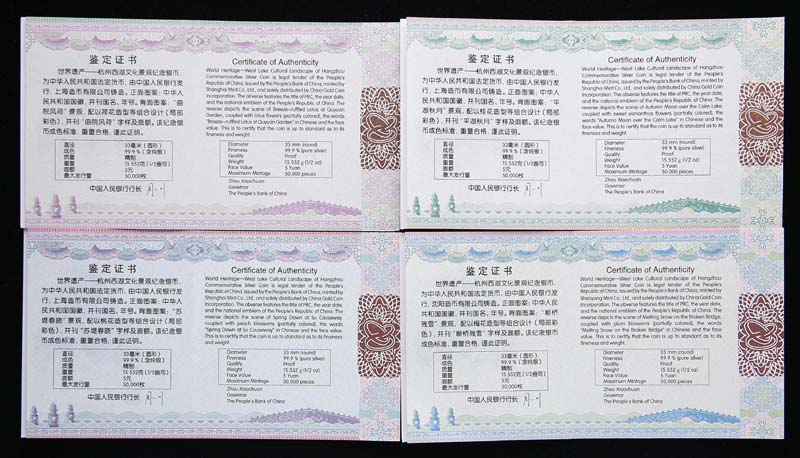 鉴定证书
世界遗产——杭州西湖文化景观纪念银币,
为中华人民共和国法定货币, 由中国人民银行发
行, 上海造币有限公司铸造。正面图案: 中华人
民共和国国徽, 并刊国名、年号。背面图案: “曲
院风荷”景观, 配以荷花造型等组合设计(局部
彩色), 并刊“曲院风荷”字样及面额。该纪念银
币成色标准, 重量合格, 谨此证明。
直径 33毫米(圆形)
成色 99.9%(含纯银)
质量 精制
重量 15.552克(1/2盎司)
面额 5元
最大发行量 50,000枚
中国人民银行行长
Certificate of Authenticity
World Heritage—West Lake Cultural Landscape of Hangzhou
Commemorative Silver Coin is legal tender of the People's
Republic of China, issued by the People's Bank of China, minted by
Shanghai Mint Co., Ltd., and solely distributed by China Gold Coin
Incorporation. The obverse features the title of PRC, the year date,
and the national emblem of the People's Republic of China. The
reverse depicts the scene of Breeze-ruffled Lotus at Quyuan
Garden, coupled with lotus flowers (partially colored), the words
"Breeze-ruffled Lotus at Quyuan Garden" in Chinese and the face
value. This is to certify that the coin is up to standard as to its
fineness and weight.
Diameter 33 mm (round)
Fineness 99.9 % (pure silver)
Quality Proof
Weight 15.552 g (1/2 oz)
Face Value 5 Yuan
Maximum Mintage 50,000 pieces
Zhou Xiaochuan
Governor
The People's Bank of China
鉴定证书
世界遗产——杭州西湖文化景观纪念银币,
为中华人民共和国法定货币, 由中国人民银行发
行, 上海造币有限公司铸造。正面图案: 中华人
民共和国国徽, 并刊国名、年号。背面图案: “平
湖秋月”景观, 配以桂花造型等组合设计(局部
彩色), 并刊“平湖秋月”字样及面额。该纪念银
币成色标准, 重量合格, 谨此证明。
直径 33毫米(圆形)
成色 99.9%(含纯银)
质量 精制
重量 15.552克(1/2盎司)
面额 5元
最大发行量 50,000枚
中国人民银行行长
Certificate of Authenticity
World Heritage—West Lake Cultural Landscape of Hangzhou
Commemorative Silver Coin is legal tender of the People's
Republic of China, issued by the People's Bank of China, minted by
Shanghai Mint Co., Ltd., and solely distributed by China Gold Coin
Incorporation. The obverse features the title of PRC, the year date,
and the national emblem of the People's Republic of China. The
reverse depicts the scene of Autumn Moon over the Calm Lake,
coupled with sweet osmanthus flowers (partially colored), the
words "Autumn Moon over the Calm Lake" in Chinese and the
face value. This is to certify that the coin is up to standard as to its
fineness and weight.
Diameter 33 mm (round)
Fineness 99.9 % (pure silver)
Quality Proof
Weight 15.552 g (1/2 oz)
Face Value 5 Yuan
Maximum Mintage 50,000 pieces
Zhou Xiaochuan
Governor
The People's Bank of China
鉴定证书
世界遗产——杭州西湖文化景观纪念银币,
为中华人民共和国法定货币, 由中国人民银行发
行, 上海造币有限公司铸造。正面图案: 中华人
民共和国国徽, 并刊国名、年号。背面图案: “苏
堤春晓”景观, 配以桃花造型等组合设计(局部
彩色), 并刊“苏堤春晓”字样及面额。该纪念银
币成色标准, 重量合格, 谨此证明。
直径 33毫米(圆形)
成色 99.9%(含纯银)
质量 精制
重量 15.552克(1/2盎司)
面额 5元
最大发行量 50,000枚
中国人民银行行长
Certificate of Authenticity
World Heritage—West Lake Cultural Landscape of Hangzhou
Commemorative Silver Coin is legal tender of the People's
Republic of China, issued by the People's Bank of China, minted by
Shanghai Mint Co., Ltd., and solely distributed by China Gold Coin
Incorporation. The obverse features the title of PRC, the year date,
and the national emblem of the People's Republic of China. The
reverse depicts the scene of Spring Dawn at Su Causeway,
coupled with peach blossoms (partially colored), the words
"Spring Dawn at Su Causeway" in Chinese and the face value.
This is to certify that the coin is up to standard as to its fineness
and weight.
Diameter 33 mm (round)
Fineness 99.9 % (pure silver)
Quality Proof
Weight 15.552 g (1/2 oz)
Face Value 5 Yuan
Maximum Mintage 50,000 pieces
Zhou Xiaochuan
Governor
The People's Bank of China
鉴定证书
世界遗产——杭州西湖文化景观纪念银币,
为中华人民共和国法定货币, 由中国人民银行发
行, 沈阳造币有限公司铸造。正面图案: 中华人民
共和国国徽, 并刊国名、年号。背面图案: “断桥
残雪”景观, 配以梅花造型等组合设计(局部彩
色), 并刊“断桥残雪”字样及面额。该纪念银币
成色标准, 重量合格, 谨此证明。
直径 33毫米(圆形)
成色 99.9%(含纯银)
质量 精制
重量 15.552克(1/2盎司)
面额 5元
最大发行量 50,000枚
中国人民银行行长
Certificate of Authenticity
World Heritage—West Lake Cultural Landscape of Hangzhou
Commemorative Silver Coin is legal tender of the People's
Republic of China, issued by the People's Bank of China, minted by
Shenyang Mint Co., Ltd., and solely distributed by China Gold Coin
Incorporation. The obverse features the title of PRC, the year date,
and the national emblem of the People's Republic of China. The
reverse depicts the scene of Melting Snow on the Broken Bridge,
coupled with plum blossoms (partially colored), the words
"Melting Snow on the Broken Bridge" in Chinese and the face
value. This is to certify that the coin is up to standard as to its
fineness and weight.
Diameter 33 mm (round)
Fineness 99.9 % (pure silver)
Quality Proof
Weight 15.552 g (1/2 oz)
Face Value 5 Yuan
Maximum Mintage 50,000 pieces
Zhou Xiaochuan
Governor
The People's Bank of China